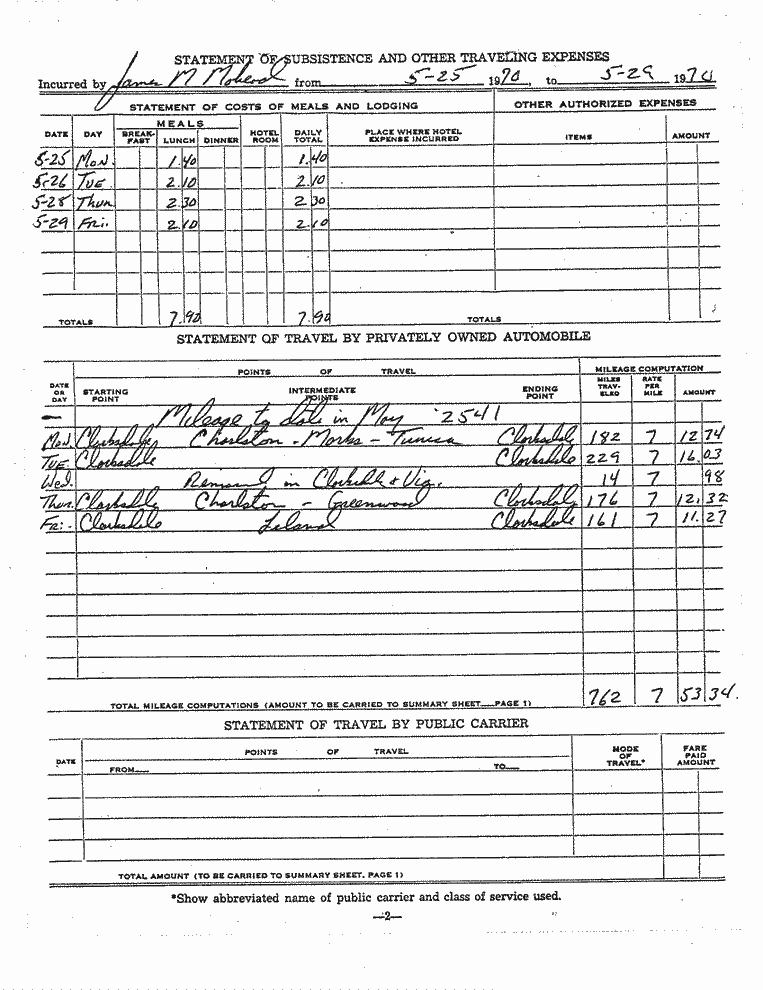 STATEMENT OF SUBSISTENCE AND OTHER TRAVELING EXPENSES
Incurred by James M Mohead from 5-25 1970, to 5-29 1970
STATEMENT OF COSTS OF MEALS AND LODGING OTHER AUTHORIZED EXPENSES
DATE DAY MEALS BREAK-FAST LUNCH DINNER HOTEL ROOM DAILY TOTAL PLACE WHERE HOTEL EXPENSE INCURRED ITEMS AMOUNT
5-25 Mon. 1.40 1.40
5-26 Tue 2.10 2.10
5-28 Thur. 2.30 2.30
5-29 Fri. 2.10 2.10
TOTALS 7.90 7.90 TOTALS
STATEMENT OF TRAVEL BY PRIVATELY OWNED AUTOMOBILE
POINTS OF TRAVEL MILEAGE COMPUTATION
DATE OR DAY STARTING POINT INTERMEDIATE POINTS ENDING POINT MILES TRAV-ELED RATE PER MILE AMOUNT
Mileage to date in May 2541
Mon. Clarksdale Charleston - Marks - Tunica Clarksdale 182 7 12 74
Tue. Clarksdale Clarksdale 229 7 16.03
Wed. Remained in Clarksdale & Vic. 14 7 98
Thur. Clarksdale Charleston - Greenwood Clarksdale 176 7 12.32
Fri. Clarksdale Leland Clarksdale 161 7 11.27
TOTAL MILEAGE COMPUTATIONS (AMOUNT TO BE CARRIED TO SUMMARY SHEET—PAGE 1) 762 7 53 34.
STATEMENT OF TRAVEL BY PUBLIC CARRIER
DATE POINTS OF TRAVEL MODE OF TRAVEL* FARE PAID AMOUNT
FROM— TO—
TOTAL AMOUNT (TO BE CARRIED TO SUMMARY SHEET. PAGE 1)
*Show abbreviated name of public carrier and class of service used.
—2—